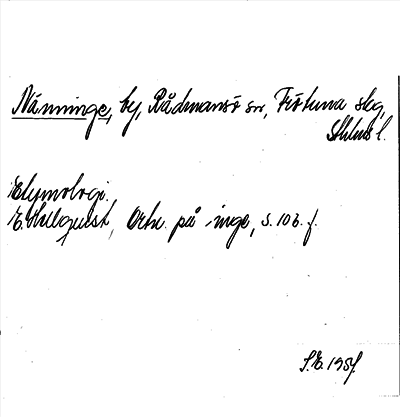 Nänninge, by, Rådmansö sn, Frötuna skg,
Sthlms l.
Etymologi.
E. Hellquist, Ortn. på -inge, s. 106 f.
S.E. 1954.